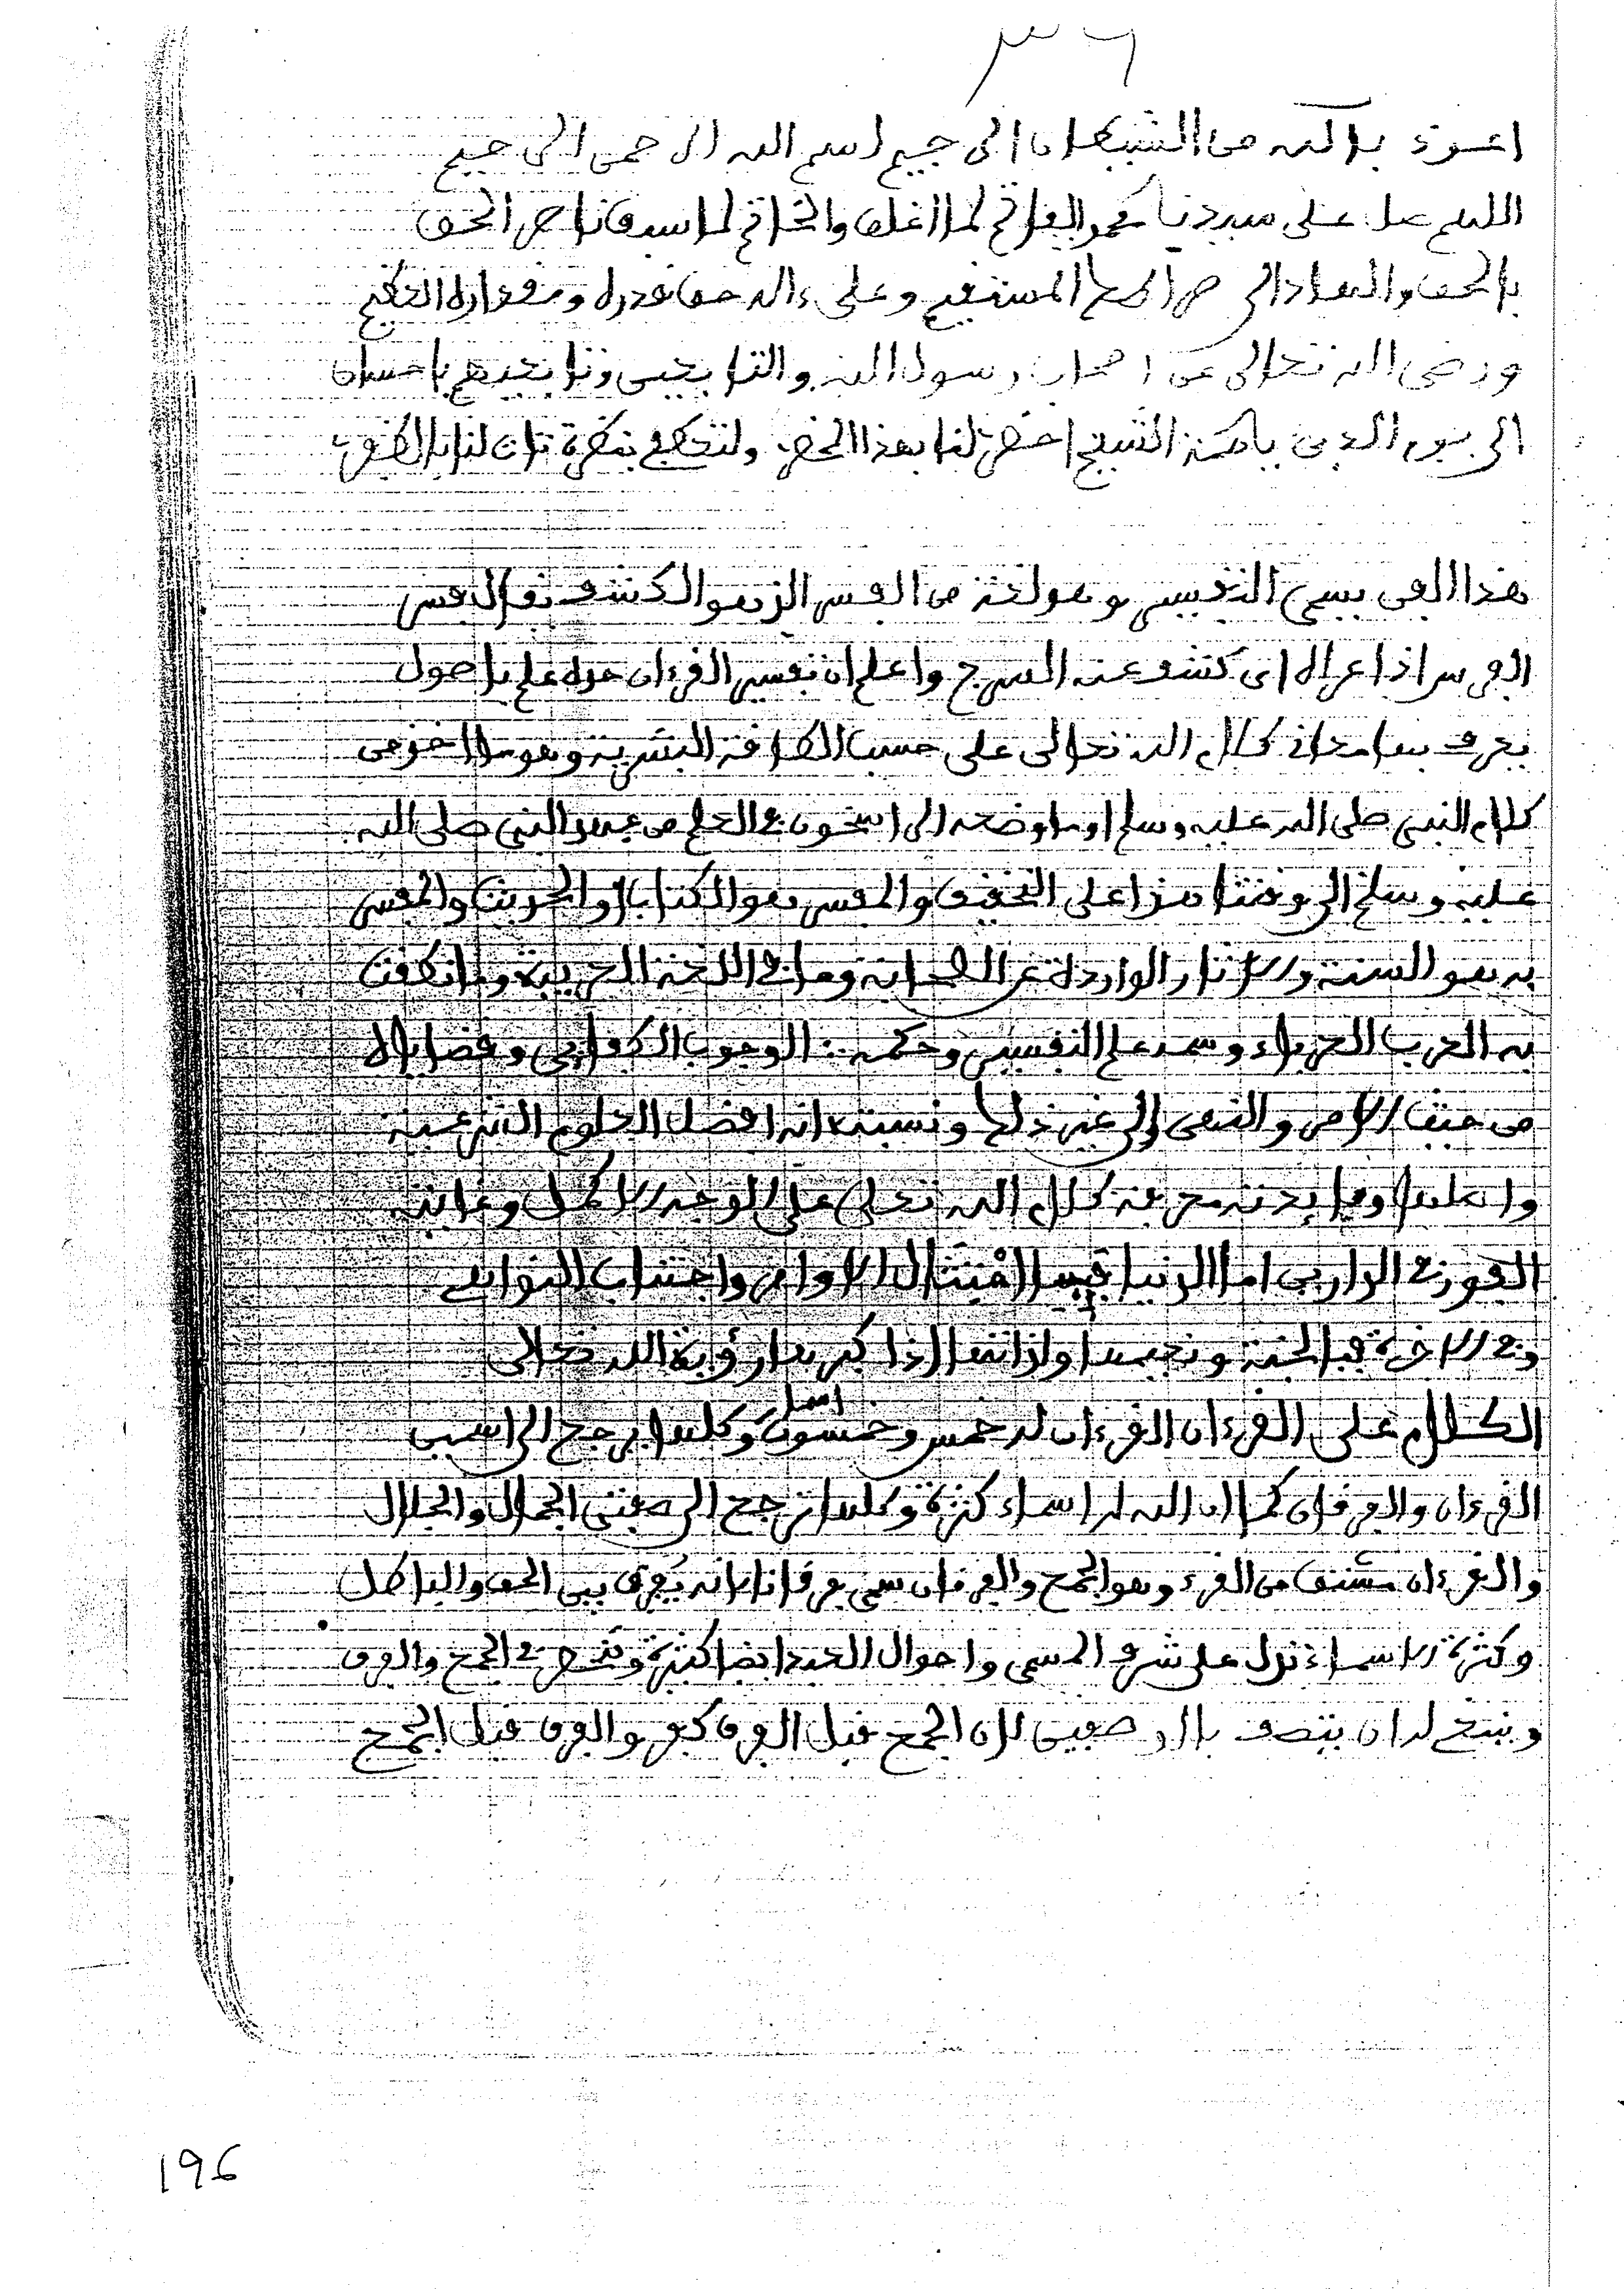 ٣٦
اعوذ بالله من الشيطان الرجيم بسم الله الرحمن الرحيم
اللهم صل على سيدنا محمد الفاتح لما اغلق والخاتم لما سبق ناصر الحق
بالحق والهادى الى صراطك المستقيم وعلى ءاله حق قدره ومقداره العظيم
ورضى الله تعالى عن اصحاب رسول الله والتابعين وتابعيهم باحسان
الى يوم الدين الشيخ احضر لنا بهذا
هذا الفن يسمى التفسير وهو لغة من الفسر الذى هو الكشف تقول فسر
الفرس اذا عراه اى كشف عنه السرج واعلم ان تفسير القرءان حده علم باصول
يعرف بها معانى كلام الله تعالى على حسب الطاقة البشرية وهو ماخوذ من
كلام النبي صلى الله عليه وسلم او ما وضعه الراسخون فى العلم من عهد النبي صلى الله
عليه وسلم الى وقتنا هذا على التحقيق والمفسر هو الكتاب او الحديث والمفسر
به هو السنة والاثار الواردة عن الصحابة وما فى اللغة العربية وما نطقت
به العرب العرباء وسمه علم التفسير وحكمه : الوجوب الكفايى وقضاياه
من حيث الامر والنهى والى غير ذلك ونسبته انه افضل العلوم الشرعية
واصلها وفايدته معرفة كلام الله تعالى على الوجه الاكمل وغايته
الفوز فى الدارين اما الدنيا فبامتثال الاوامر واجتناب النواهى
وفى الاخرة فبالجنة ونعيمها ولذاتها اذ اكبرها رؤية الله تعالى
الكلام على القرءان القرءان له خمس وخمسون اسما وكلها يرجع الى اسمى
القرءان والفرقان كما ان الله له اسماء كثرة وكلها ترجع الى صفتى الجمال والجلال
والقرءان مشتق من القرء وهو الجمع والفرقان سمى فرقانا لانه يُفرق بين الحق والباطل
وكثرة الاسماء تدل على شرف المسمى واحوال العبد ايضا كثيرة وتنحصر فى الجمع والفرق
وينبغى له ان يتصف بالوصفين لان الجمع قبل الفرق كفر والفرق قبل الجمع
196